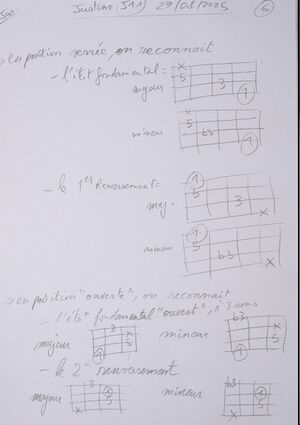 Justine (J11) 29/08/2025 6
→ en position serrée, on reconnait
- l'état fondamental =
majeur
x
5
3
1
mineur
x
5
b3
1
- le 1er Renversement =
maj.
1
5
3
x
mineur
1
5
b3
x
→ en position "ouverte", on reconnait
- l'état fondamental "ouvert", à 3 sons
majeur
3
x
5
1
mineur
b3
x
5
1
- le 2e renversement
majeur
3
1
5
x
mineur
b3
1
5
x